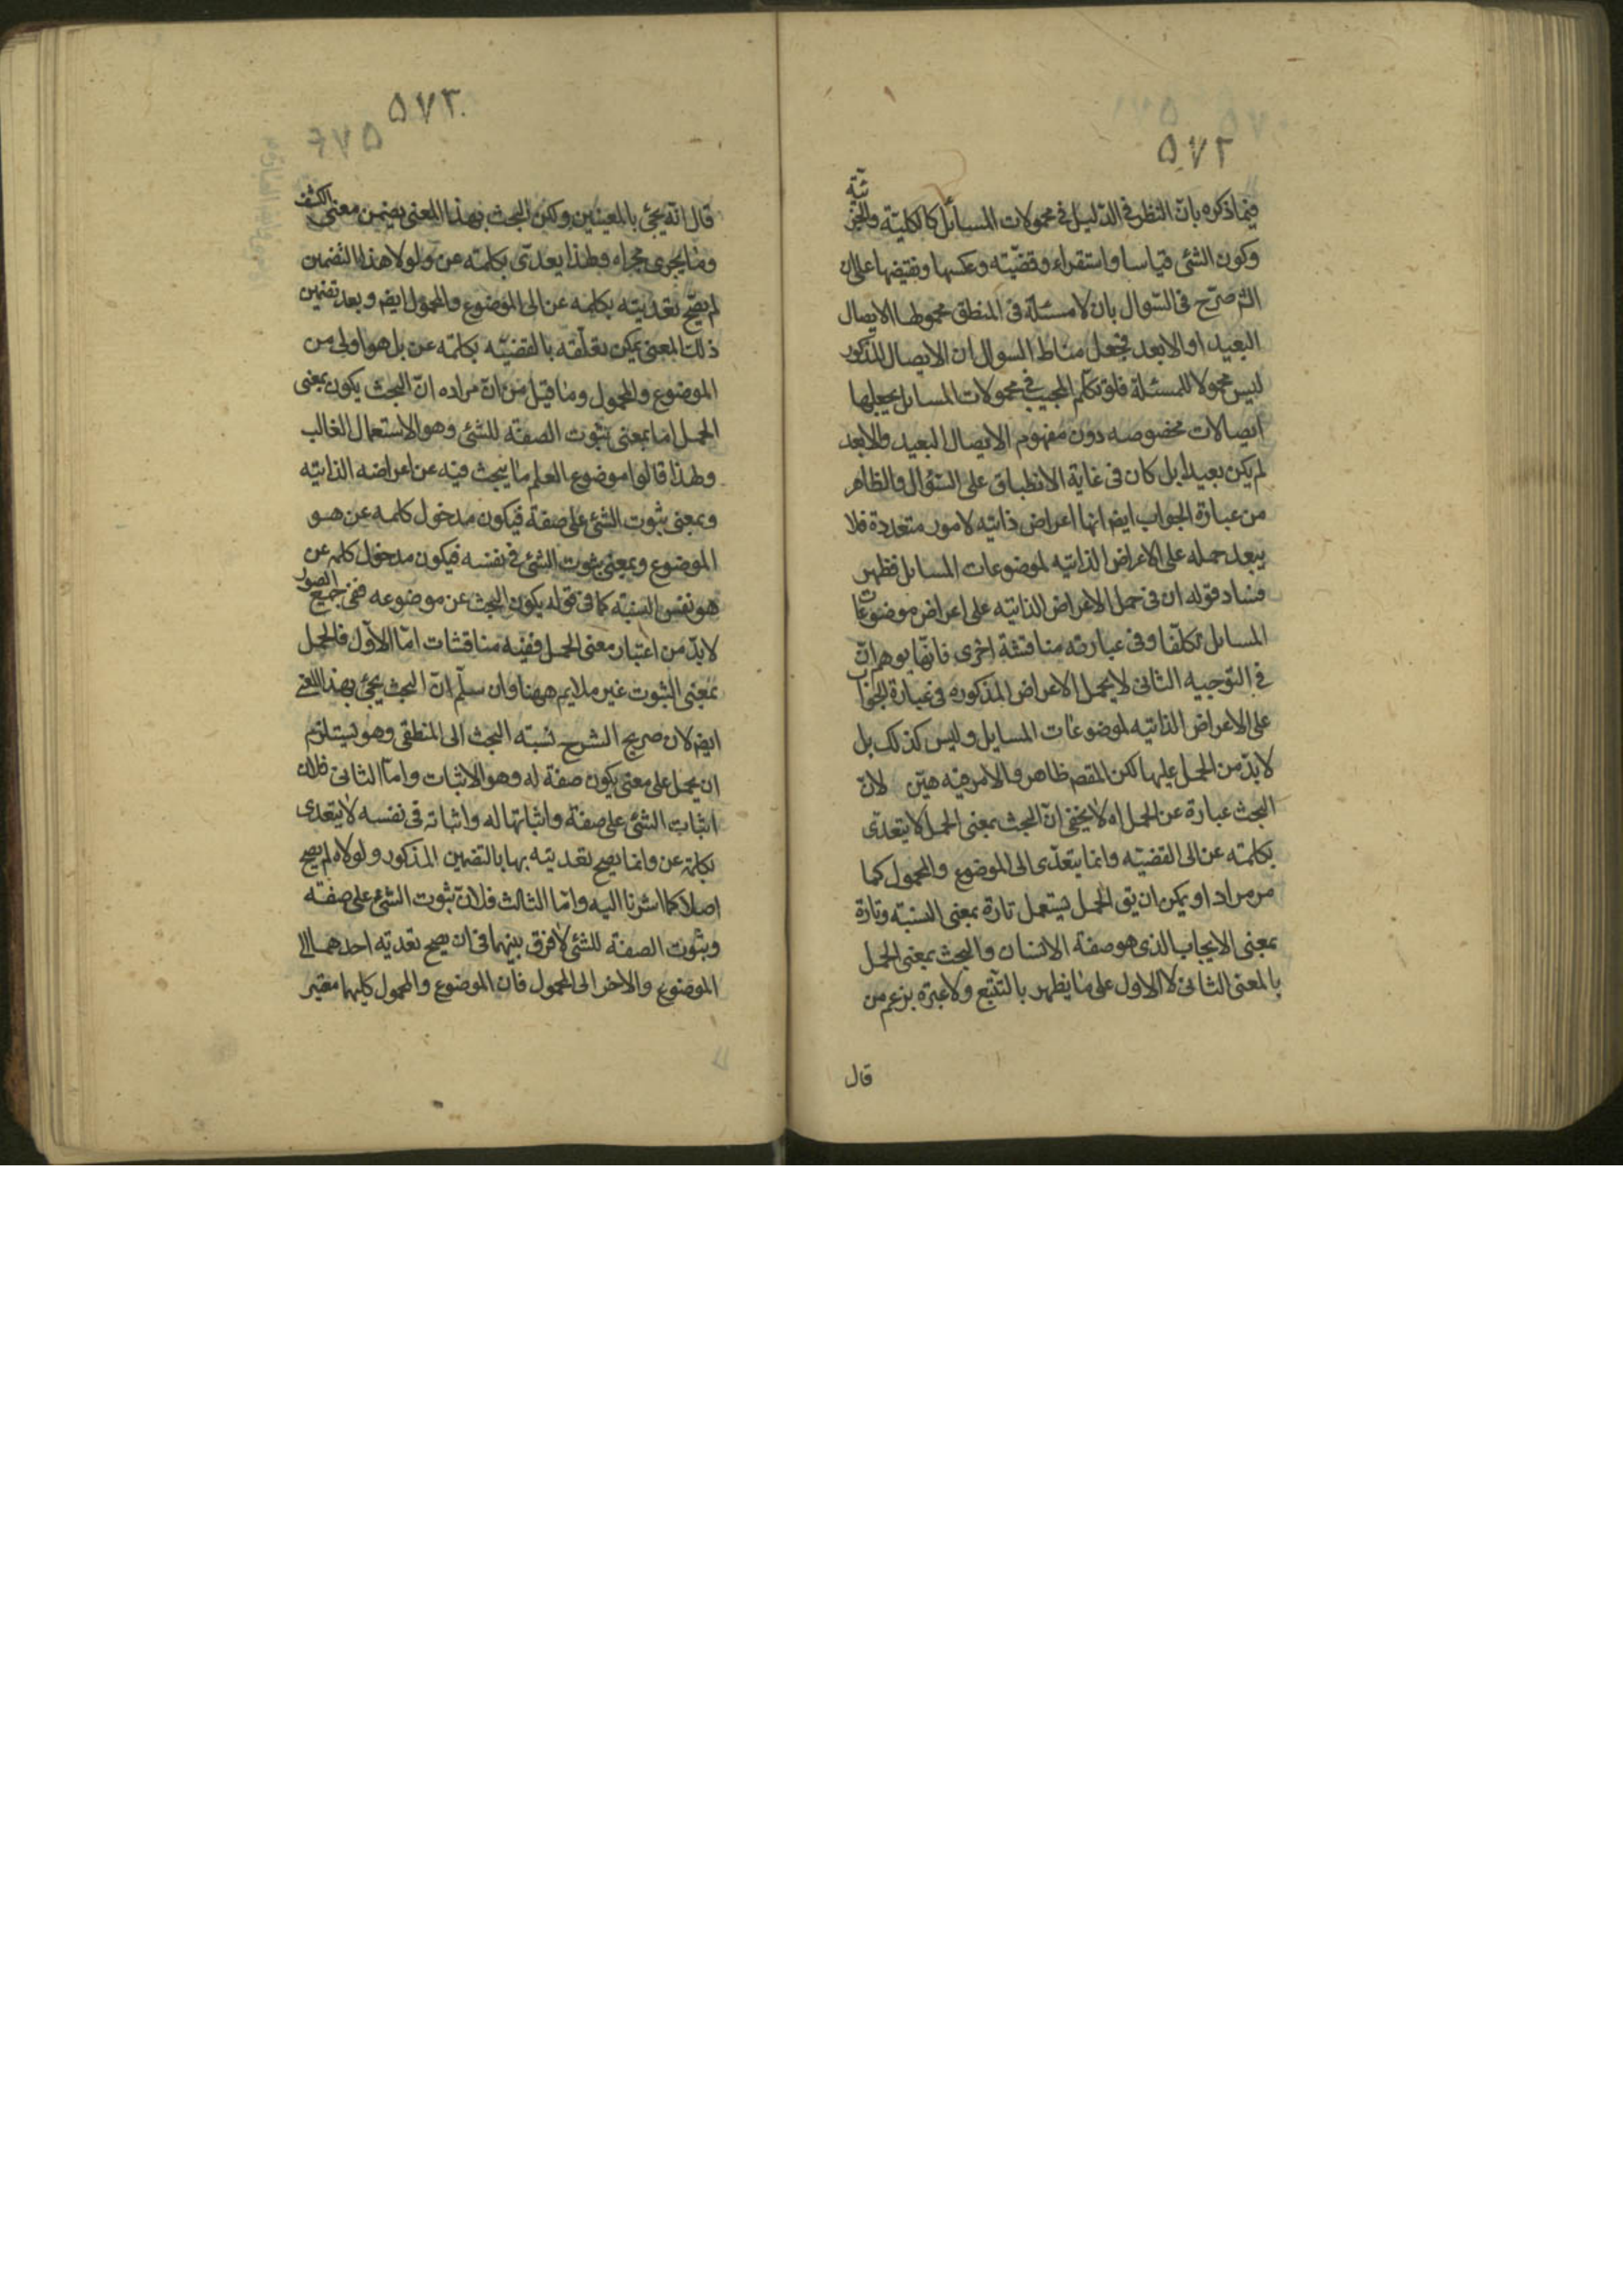 ٥٧٢
فيما ذكره بان النظر في الدليل في محمولات المسائل كالكلية والجزئية
وكون الشئ قياسا واستقراء وقضيته وعكسها ونقيضها على ان
الشم صرح فى السوال بان لا مسئلة فى المنطق محمولها الايصال
البعيد او الابعد فجعل مناط السوال ان الايصال المذكور
ليس محمولا للمسئلة فلو تكلم المجيب في محمولات المسائل بجعلها
ايصالات مخصوصه دون مفهوم الايصال البعيد والابعد
لم يكن بعيدا بل كان فى غاية الانطباق على السؤال والظاهر
من عبارة الجواب ايضا انها اعراض ذاتيه لامور متعددة فلا
يبعد حمله على الاعراض الذاتيه لموضوعات المسائل فظهر
فساد قوله ان فى حمل الاعراض الذاتيه على اعراض موضوعات
المسائل تكلفا وفى عبارته مناقشة اخرى فانها يوهم ان
في التوجيه الثانى لا يحمل الاعراض المذكوره فى عبارة الجواب
على الاعراض الذاتيه لموضوعات المسايل وليس كذلك بل
لا بد من الحمل عليها لكن المقصم ظاهر والامر فيه هين لان
البحث عبارة عن الحمل اه لا يخفى ان البحث بمعنى الحمل لا يتعدى
بكلمته عن الى القضيته وانما يتعدى الى الموضوع والمحمول كما
مر مرادا ويمكن ان يق الحمل يستعمل تارة بمعنى النسبة وتارة
بمعنى الايجاب الذى هو صفة الانسان والبحث بمعنى الحمل
بالمعنى الثانى لا الاول على ما يظهر بالتتبع ولا عبرة بزعم من
قال
٥٧٣
قال انه يجئ بالمعنيين ولكن البحث بهذا المعنى يضمن معنى الكشف
وما يجرى مجراه ولهذا يعدى بكلمته عن ولولا هذا التضمين
لم يصح تعديته بكلمه عن الى الموضوع والمحمول ايضا وبعد تضمين
ذلك المعنى يمكن تعلقه بالقضيته بكلمته عن بل هو اولى من
الموضوع والمحمول وما قيل من ان مراده ان البحث يكون بمعنى
الحمل اما بمعنى ثبوت الصفة للشئ وهو الاستعمال الغالب
ولهذا قالوا موضوع العلم ما يبحث فيه عن اعراضه الذاتيه
وبمعنى ثبوت الشئ على صفة فيكون مدخول كلمه عن هو
الموضوع وبمعنى ثبوت الشئ فى نفسه فيكون مدخول كلمه عن
هو نفس النسبة كما فى قوله يكون البحث عن موضوعه ففى جميع الصور
لا بد من اعتبار معنى الحمل ففيه مناقشات اما الاول فالحمل
بمعنى الثبوت غير ملايم ههنا وان سلم ان البحث يجئ بهذا المعنى
ايضا لان صريح الشرح نسبته البحث الى المنطقى وهو يستلزم
ان يحمل على معنى يكون صفة له وهو الاثبات واما الثانى فلان
اثبات الشئ على صفة واثباتها له واثباته فى نفسه لا يتعدى
بكلمة عن وانما يصح تعديته بها بالتضمين المذكور ولولاه لم يصح
اصلا كما اشرنا اليه واما الثالث فلان ثبوت الشئ على صفته
وثبوت الصفة للشئ لا فرق بينهما فى ان يصح تعديته احدهما الى
الموضوع والاخر الى المحمول فان الموضوع والمحمول كليهما معتبر